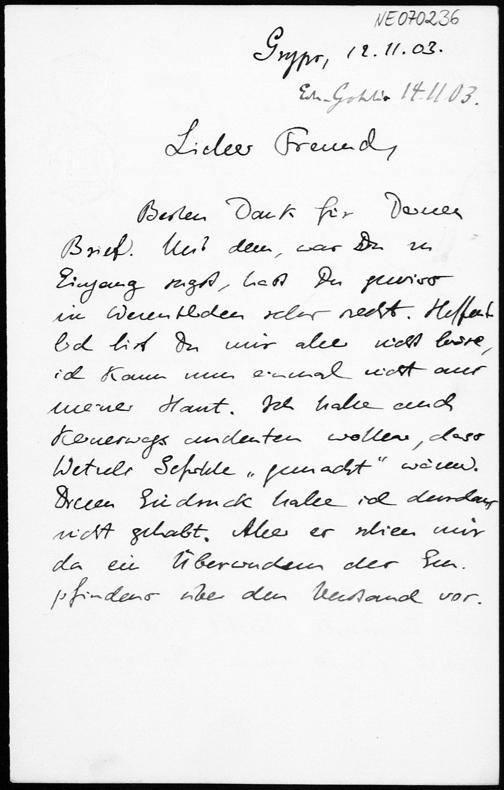 NE070236
Gryps, 12.11.03.
14.11.03.
Lieber Freund,
Besten Dank für Deinen
Brief. Mit dem, was Du im
Eingang sagst, hast Du gewiss
im Wesentlichen sehr recht. Hoffent-
lich bist Du mir aber nicht böse,
ich kann nun einmal nicht aus
meiner Haut. Ich habe auch
keineswegs andeuten wollen, dass
Gefühle „gemacht“ wären.
Diesen Eindruck habe ich durchaus
nicht gehabt. Aber es schien mir
da ein Überwiegen des Em-
pfindens über den Verstand vor.